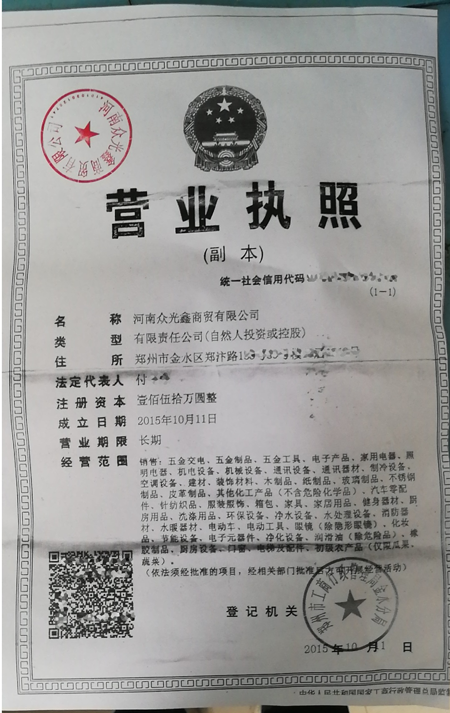 河南众光鑫商贸有限公司
营业执照
(副 本)
统一社会信用代码
(1-1)
名 称 河南众光鑫商贸有限公司
类 型 有限责任公司(自然人投资或控股)
住 所 郑州市金水区郑汴路
法定代表人 付
注册资本 壹佰伍拾万圆整
成立日期 2015年10月11日
营业期限 长期
经营范围 销售:五金交电、五金制品、五金工具、电子产品、家用电器、照
明电器、机电设备、机械设备、通讯设备、通讯器材、制冷设备、
空调设备、建材、装饰材料、木制品、纸制品、玻璃制品、不锈钢
制品、皮革制品、其他化工产品(不含危险化学品)、汽车零配
件、针纺织品、服装服饰、箱包、家具、家居用品、健身器材、厨
房用品、洗涤用品、环保设备、净水设备、水处理设备、消防器
材、水暖器材、电动车、电动工具、眼镜(除隐形眼镜)、化妆
品、节能设备、电子元器件、净化设备、润滑油(除危险品)、橡
胶制品、厨房设备、门窗、电梯及配件、初级农产品(仅限瓜果、
蔬菜)。
(依法须经批准的项目,经相关部门批准后方可开展经营活动)
登记机关
郑州市工商行政管理局金水分局
2015年10月1 日
中华人民共和国国家工商行政管理总局监